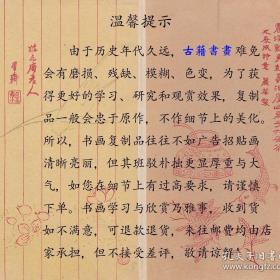 温馨提示
由于历史年代久远，古籍书畫难免
会有磨损、残缺、模糊、色变，为了获
得更好的学习、研究和观赏效果，复制
品一般会忠于原作，不作细节上的美化。
所以，书画复制品往往不如广告招贴画
清晰亮丽，但其斑驳朴拙更显厚重与大
气，如您在细节上有过高要求，请谨慎
下单。书画学习与欣赏乃雅事，收到货
如不满意，可退款退货，来往邮费均由店
家承担，但不接受差评，敬请谅解！